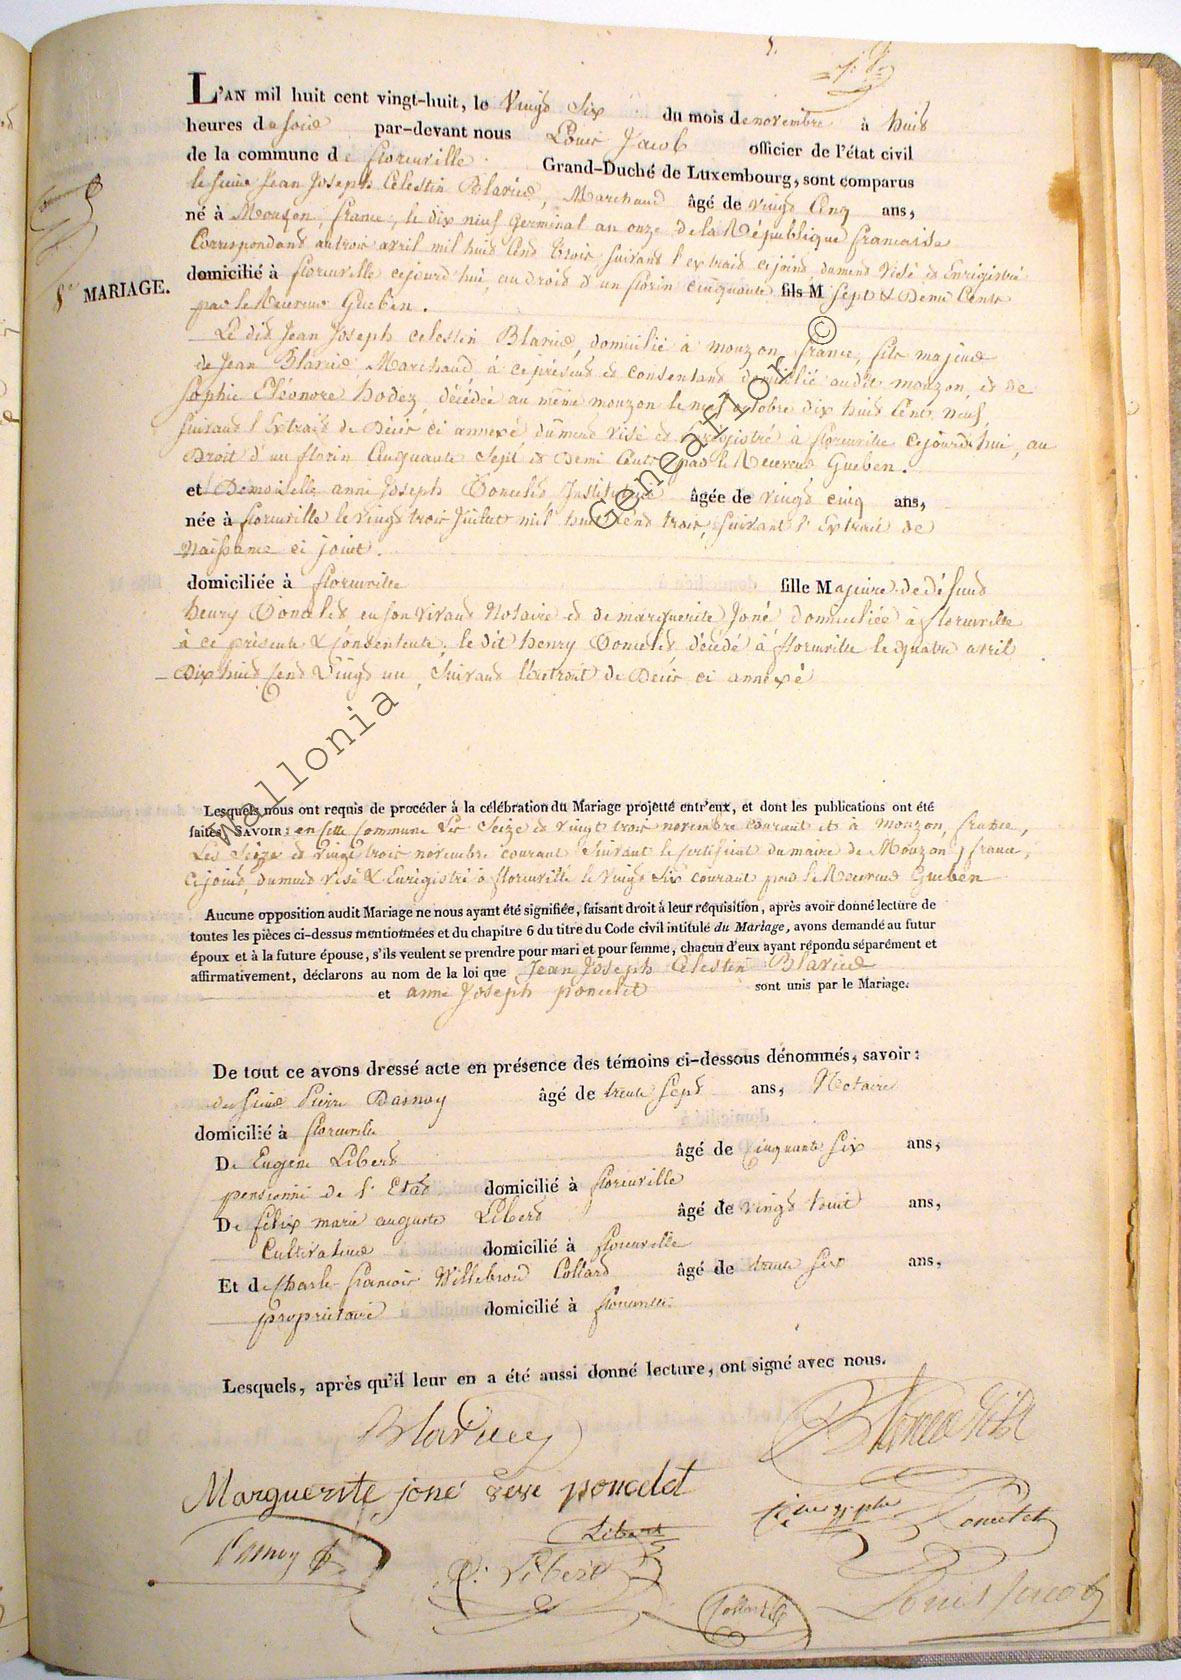 L'AN mil huit cent vingt-huit, le Vingt Six du mois de novembre à huit
heures de soir par-devant nous Louis Jacob officier de l'état civil
de la commune de florenville Grand-Duché de Luxembourg, sont comparus
le sieur Jean Joseph Celestin Blariau, Marchand âgé de vingt Cinq ans,
né à Mouzon, france, le dix neuf Germinal an onze de la République française
Correspondant au trois avril mil huit Cent trois suivant l'extrait cijoint dument visé et Enrégistré
8e MARIAGE. domicilié à florenville cejourd'hui, au droit d'un florin cinquante fils M sept & Demi Cents
par le Receveur Gueben.
Le dit Jean Joseph celestin Blariau, domicilié à mouzon, france, fils majeur
de Jean Blariau Marchand à ce présent et consentant domicilié audit mouzon, et de
Sophie Eléonore hodez, décédée au même mouzon le neuf octobre dix huit Cent neuf,
suivant l'Extrait de Décès ci annexé dument visé et Enregistré à florenville cejourd'hui, au
Droit d'un florin Cinquante Sept et Demi Cents par le Receveur Gueben.
et Demoiselle anne Joseph Poncelet, Institutrice âgée de vingt cinq ans,
née à florenville le vingt trois Juillet mil huit Cend trois, suivant l'Extrait de
Naissance ci joint.
domiciliée à florenville fille Majeure de défunt
henry Poncelet en son vivant Notaire et de marguerite Joné domiciliée à florenville
à ce présente & consentente, le dit henry Poncelet, décédé à florenville le quatre avril
Dix huit Cend Vingt un, Suivant l'extrait de Décès ci annexé
Lesquels nous ont requis de procéder à la célébration du Mariage projetté entr'eux, et dont les publications ont été
faites, SAVOIR: en cette commune les Seize et vingt trois novembre courant et à mouzon, france,
Les Seize et vingt trois novembre courant Suivant le certificat du maire de Mouzon, france,
cijoint, dument visé & Enrégistré à florenville le vingt six courant par le Receveur Gueben
Aucune opposition audit Mariage ne nous ayant été signifiée, faisant droit à leur réquisition, après avoir donné lecture de
toutes les pièces ci-dessus mentionnées et du chapitre 6 du titre du Code civil intitulé du Mariage, avons demandé au futur
époux et à la future épouse, s'ils veulent se prendre pour mari et pour femme, chacun d'eux ayant répondu séparément et
affirmativement, déclarons au nom de la loi que Jean Joseph Celestin Blariau
et anne Joseph poncelet sont unis par le Mariage.
De tout ce avons dressé acte en présence des témoins ci-dessous dénommés, savoir:
du sieur Pierre Dasnoy âgé de trente sept ans, Notaire
domicilié à florenville
De Eugène Libert âgé de Cinquante six ans,
pensionné de l'Etat domicilié à florenville
De félix marie auguste Libert âgé de vingt huit ans,
Cultivateur domicilié à florenville
Et de Charle françois Willebrod Collard âgé de trente six ans,
propriétaire domicilié à florenville
Lesquels, après qu'il leur en a été aussi donné lecture, ont signé avec nous.
Marguerite joné veve poncelet
Libert Poncelet
Dasnoy Libert
Collard Louis Jacob
wallonia Geneaflor ©